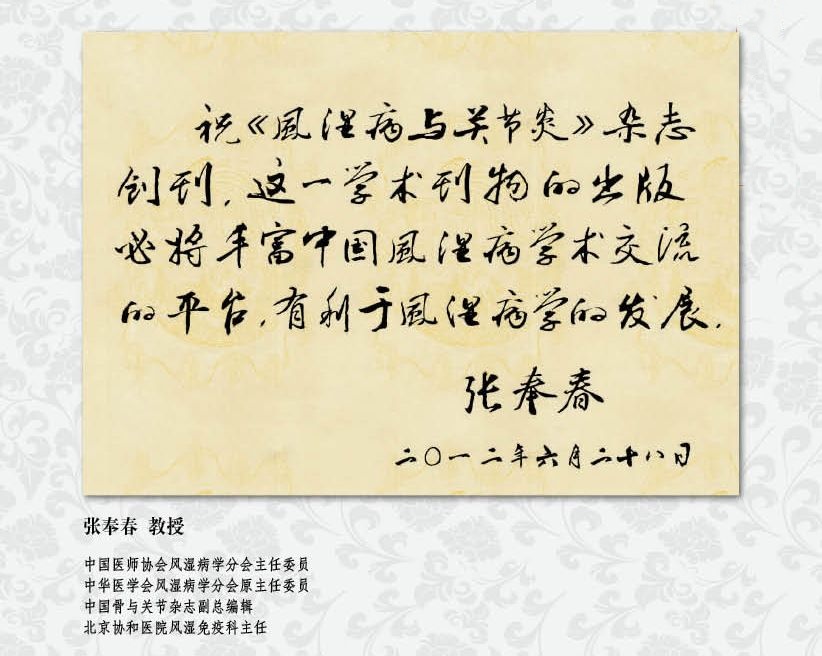 祝《風湿病与关节炎》杂志
创刊，这一学术刊物的出版
必将丰富中国風湿病学术交流
的平台，有利于風湿病学的发展．
张奉春
二〇一二年六月二十八日
张奉春 教授
中国医师协会风湿病学分会主任委员
中华医学会风湿病学分会原主任委员
中国骨与关节杂志副总编辑
北京协和医院风湿免疫科主任